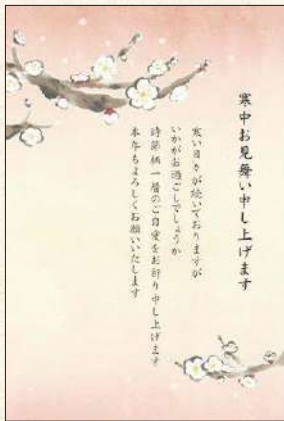 寒中お見舞い申し上げます
寒い日々が続いておりますが
いかがお過ごしでしょうか
時節柄一層のご自愛をお祈り申し上げます
本年もよろしくお願いいたします